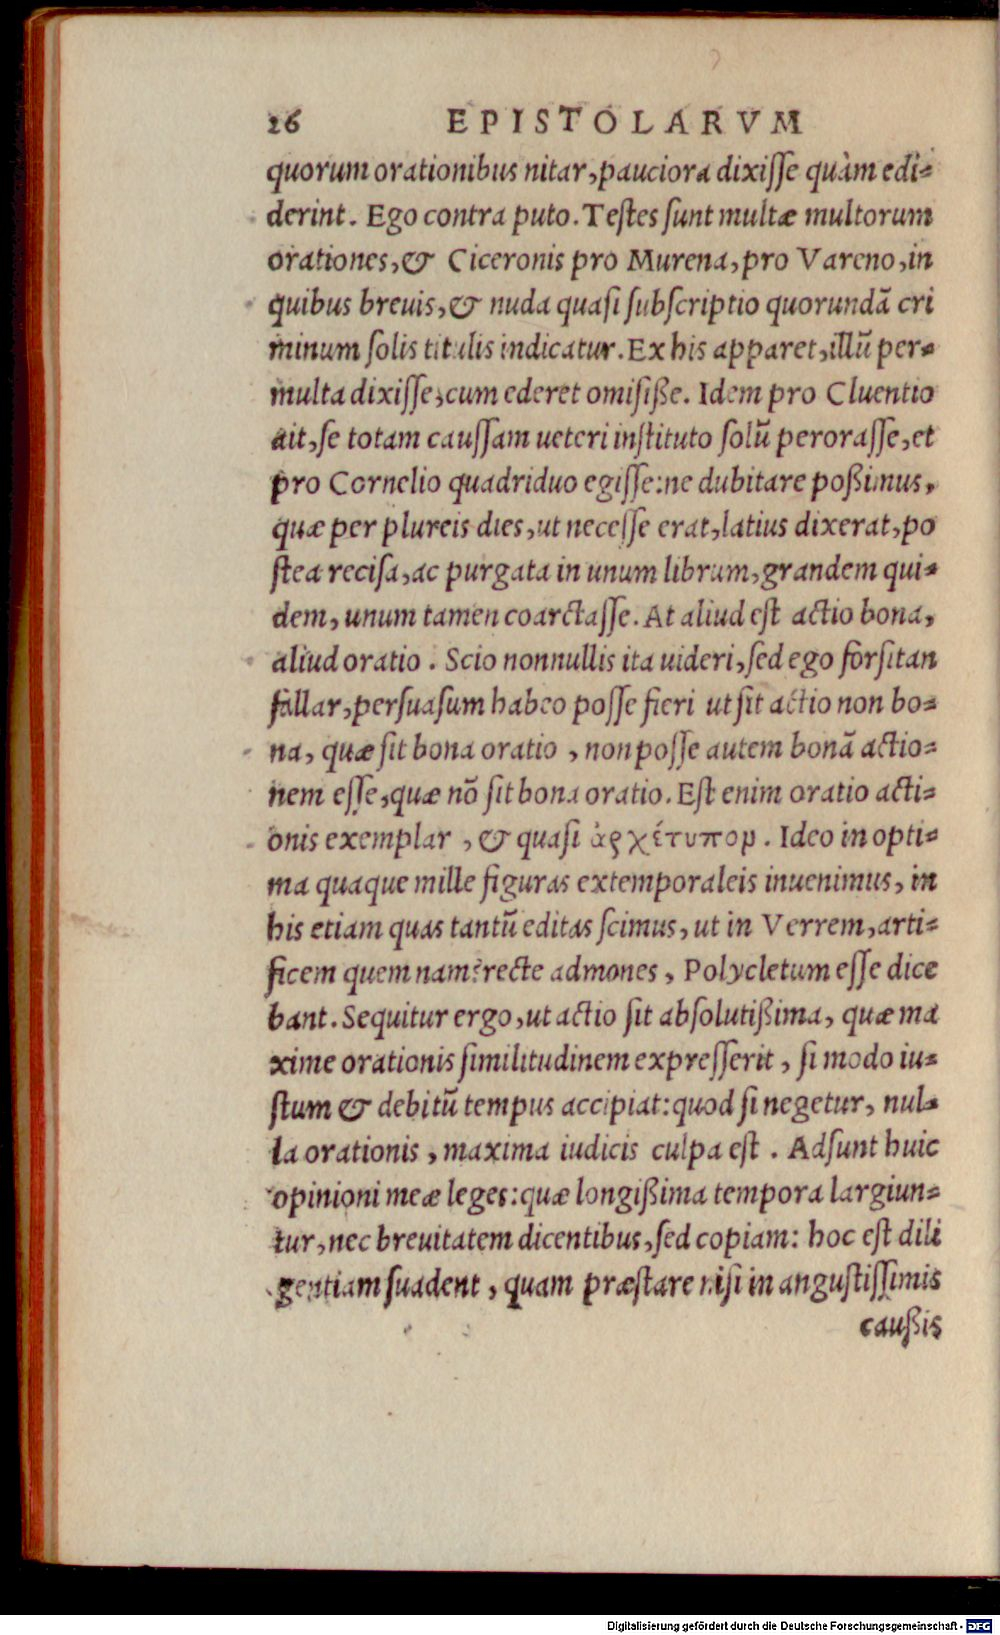 26 EPISTOLARVM
quorum orationibus nitar, pauciora dixiſſe quàm edi=
derint. Ego contra puto. Teſtes ſunt multæ multorum
orationes, & Ciceronis pro Murena, pro Vareno, in
quibus breuis, & nuda quaſi ſubſcriptio quorundã cri
minum ſolis titulis indicatur. Ex his apparet, illũ per=
multa dixiſſe, cum ederet omiſiße. Idem pro Cluentio
ait, ſe totam cauſſam ueteri inſtituto ſolũ peroraſſe, et
pro Cornelio quadriduo egiſſe: ne dubitare poßimus,
quæ per plureis dies, ut neceſſe erat, latius dixerat, po
ſtea reciſa, ac purgata in unum librum, grandem qui=
dem, unum tamen coarctaſſe. At aliud eſt actio bona,
aliud oratio. Scio nonnullis ita uideri, ſed ego forſitan
fallar, perſuaſum habeo poſſe fieri ut ſit actio non bo=
na, quæ ſit bona oratio, non poſſe autem bonã actio=
nem eſſe, quæ nõ ſit bona oratio. Eſt enim oratio acti=
onis exemplar, & quaſi ἀρχέτυπον. Ideo in opti=
ma quaque mille figuras extemporaleis inuenimus, in
his etiam quas tantũ editas ſcimus, ut in Verrem, arti=
ficem quem nam? recte admones, Polycletum eſſe dice
bant. Sequitur ergo, ut actio ſit abſolutißima, quæ ma
xime orationis ſimilitudinem expreſſerit, ſi modo iu=
ſtum & debitũ tempus accipiat: quod ſi negetur, nul=
la orationis, maxima iudicis culpa eſt. Adſunt huic
opinioni meæ leges: quæ longißima tempora largiun=
tur, nec breuitatem dicentibus, ſed copiam: hoc eſt dili
gentiam ſuadent, quam præſtare niſi in anguſtiſſimis
caußis
Digitalisierung gefördert durch die Deutsche Forschungsgemeinschaft - DFG